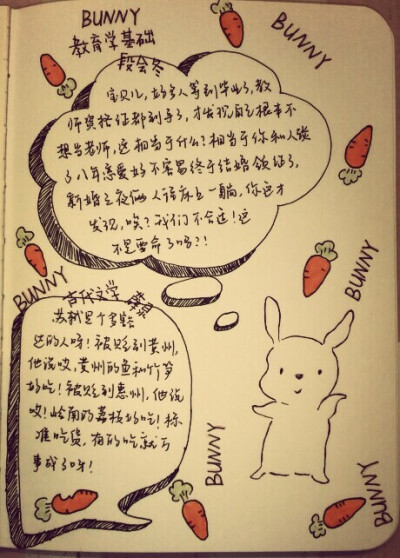 BUNNY
BUNNY
教育学基础
段会冬
宝贝儿,好多人等到毕业了,教
师资格证都到手了,才发现自己根本不
想当老师,这相当于什么?相当于你和人谈
了八年恋爱好不容易终于结婚领证了,
新婚之夜俩人往床上一躺,你这才
发现,唉?我们不合适!这
不是要命了吗?!
BUNNY
BUNNY
BUNNY
古代文学
苏轼是个多豁
达的人呀!被贬到黄州,
他说哎,黄州的鱼和竹笋
好吃!被贬到惠州,他说
哎!岭南的荔枝好吃!标
准吃货,有的吃就万
事成了呀!
BUNNY
BUNNY